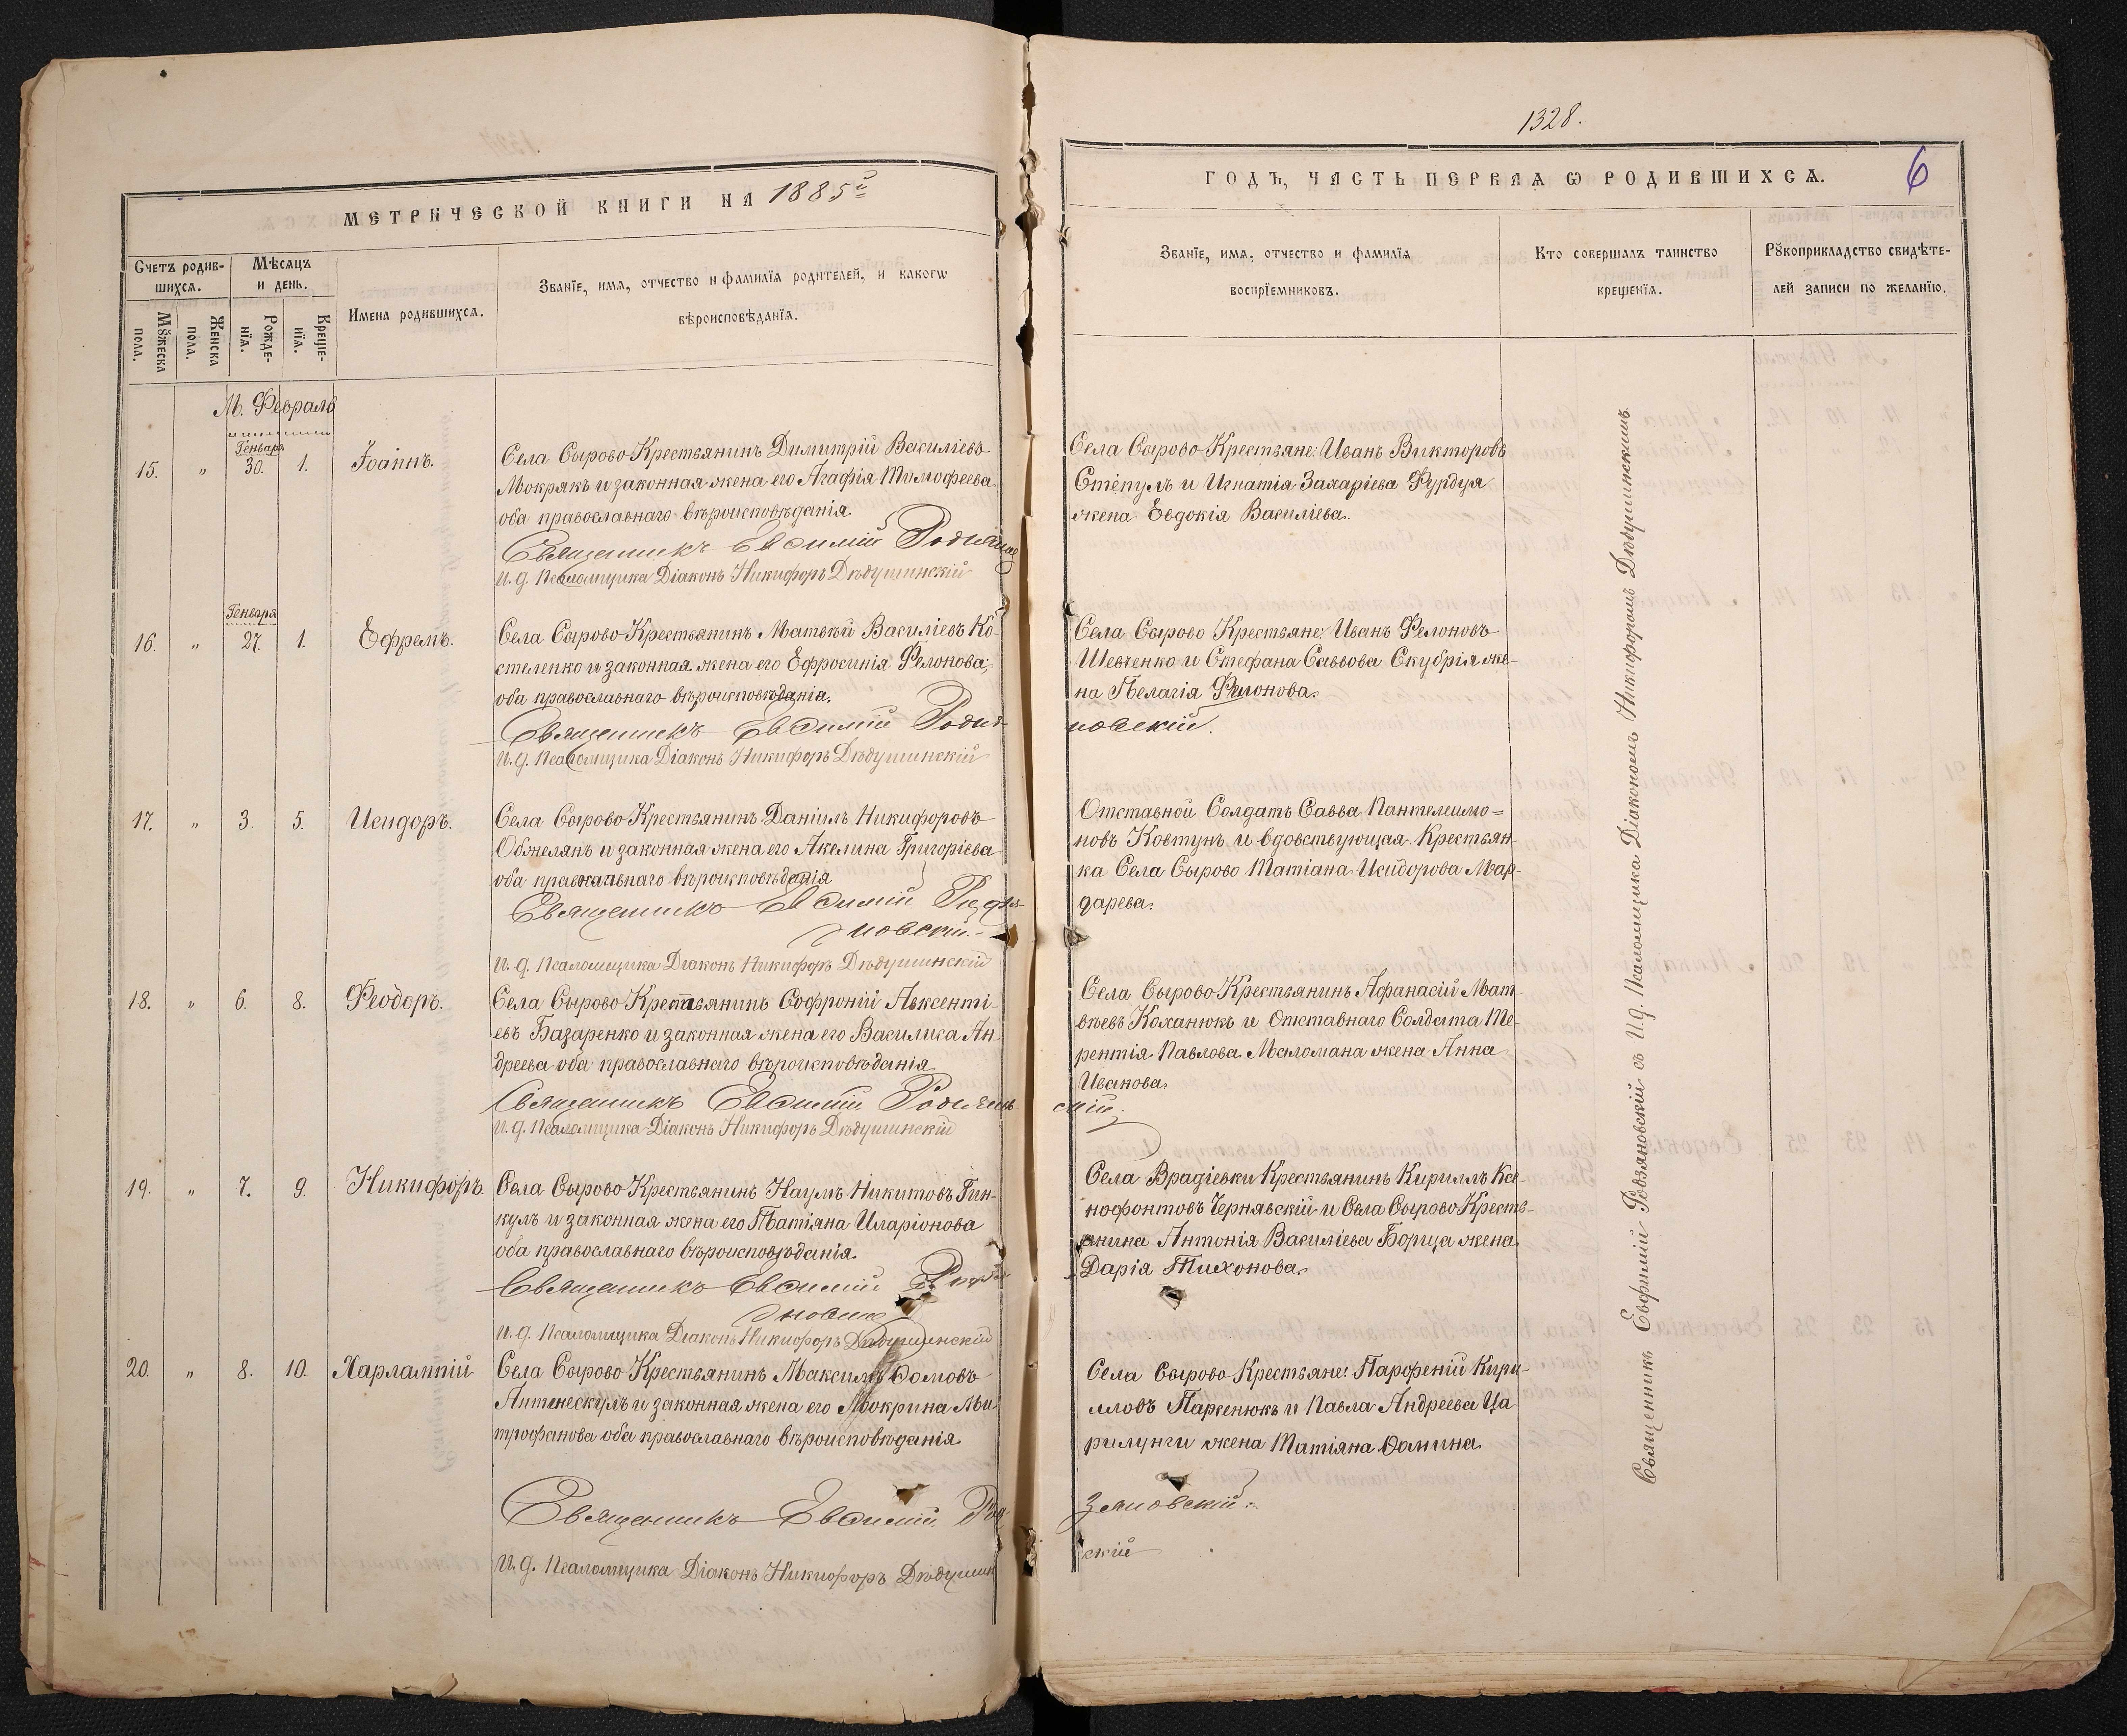 1328.
6
МЕТРИЧЕСКОЙ КНИГИ НА 1885й
ГОДЪ, ЧАСТЬ ПЕРВАѦ Ѡ РОДИВШИХСѦ.
Счетъ родив-
шихсѧ.
Мѣсѧцъ
и день.
Мꙋжеска
пола.
Женска
пола.
Рожде-
нїѧ.
Креще-
нїѧ.
Имена родившихсѧ.
Званїе, имѧ, отчество и фамилїѧ родителей, и какогѡ
вѣроисповѣданїѧ.
Званїе, имѧ, отчество и фамилїѧ
воспрїемниковъ.
Кто совершалъ таинство
крещенїѧ.
Рꙋкоприкладство свидѣте-
лей записи по желанїю.
М. Февраль
Генваря
15. " 30. 1. Іоаннъ.
Села Сырово Крестьянинъ Димитрій Василіевъ
Мокрякъ и законная жена его Агафія Тимофеева
оба православнаго вѣроисповѣданія.
Священникъ Евѳимій
И. д. Псаломщика Діаконъ Никифоръ Дѣдушинскій
Села Сырово Крестьяне: Иванъ Викторовъ
Степулъ и Игнатія Захаріева Фурдуя
жена Евдокія Василіева.
Генваря
16. " 27. 1. Ефремъ.
Села Сырово Крестьянинъ Матвѣй Василіевъ Ко-
стеленко и законная жена его Ефросинія Филонова;
оба православнаго вѣроисповѣданія.
Священникъ Евѳимій
новскій.
И. д. Псаломщика Діаконъ Никифоръ Дѣдушинскій
Села Сырово Крестьяне: Иванъ Филоновъ
Шевченко и Стефана Саввова Скубрія же-
на Пелагія Филонова.
17. " 3. 5. Исидоръ.
Села Сырово Крестьянинъ Даніилъ Никифоровъ
Обжелянъ и законная жена его Акелина Григоріева
оба православнаго вѣроисповѣданія
Священникъ Евѳимій
новскій.
И. д. Псаломщика Діаконъ Никифоръ Дѣдушинскій
Отставной Солдатъ Савва Пантелеимо=
новъ Ковтунъ и вдовствующая Крестьян-
ка Села Сырово Татіана Исидорова Мар-
дарева.
18. " 6. 8. Феодоръ.
Села Сырово Крестьянинъ Софроній Авксенті-
евъ Базаренко и законная жена его Василиса Ан-
дреева оба православнаго вѣроисповѣданія
Священникъ Евѳимій
скій.
И. д. Псаломщика Діаконъ Никифоръ Дѣдушинскій
Села Сырово Крестьянинъ Афанасій Мат-
вѣевъ Коханюкъ и Отставнаго Солдата Те-
рентія Павлова Маломана жена Анна
Иванова.
19. " 7. 9. Никифоръ.
Села Сырово Крестьянинъ Наумъ Никитовъ Гин-
кулъ и законная жена его Татіяна Иларіонова
оба православнаго вѣроисповѣданія.
Священникъ Евѳимій
И. д. Псаломщика Діаконъ Никифоръ Дѣдушинскій
Села Врадіевки Крестьянинъ Кириллъ Ксе-
нофонтовъ Чернявскій и Села Сырово Кресть-
янина Антонія Василіева Борща жена
Дарія Тихонова.
20. " 8. 10. Харлампій
Села Сырово Крестьянинъ Максимъ Ѳомовъ
Антинескулъ и законная жена его Мокрина Ми-
трофанова оба православнаго вѣроисповѣданія.
Священникъ Евѳимій Род-
зяновскій.
И. д. Псаломщика Діаконъ Никифоръ Дѣдушин
скій
Села Сырово Крестьяне: Парфеній Кири-
лловъ Паркенюкъ и Павла Андреева Ца
рилунги жена Татіяна Ѳомина.
Священникъ Евфимій Родзяновскій съ И. д. Псаломщика Діакономъ Никифоромъ Дѣдушинскимъ.